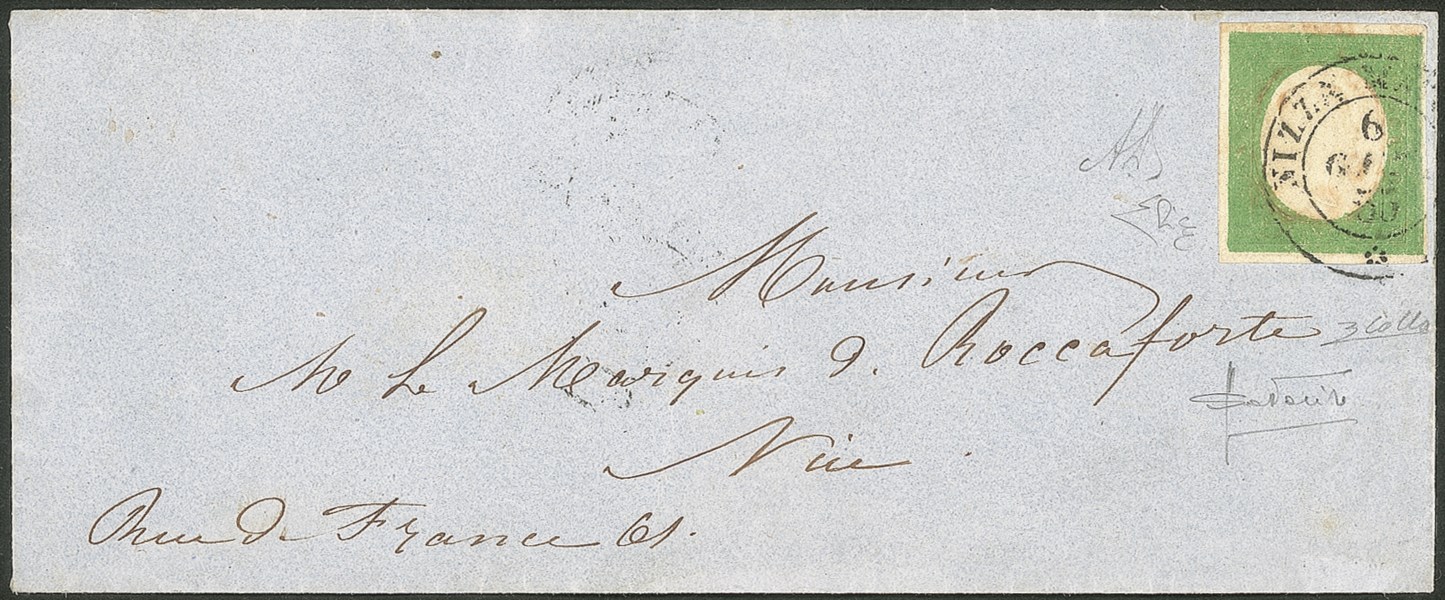 NIZZA
6
GEN
Monsieur
Mr Le Marquis d. Roccaforte
Nice
Rue d. France 61.